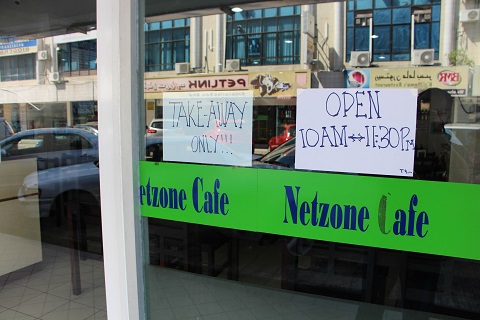 TAKE-AWAY
ONLY!!!
OPEN
10AM↔11:30PM
Netzone Cafe
Netzone Cafe
PETLINK